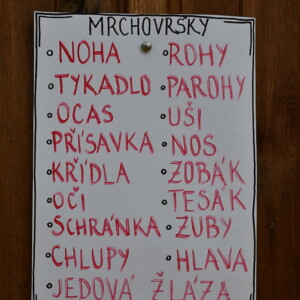 MRCHOVRSKY
NOHA
TYKADLO
OCAS
PŘÍSAVKA
KŘÍDLA
OČI
SCHRÁNKA
CHLUPY
JEDOVÁ ŽLÁZA
ROHY
PAROHY
UŠI
NOS
ZOBÁK
TESÁK
ZUBY
HLAVA